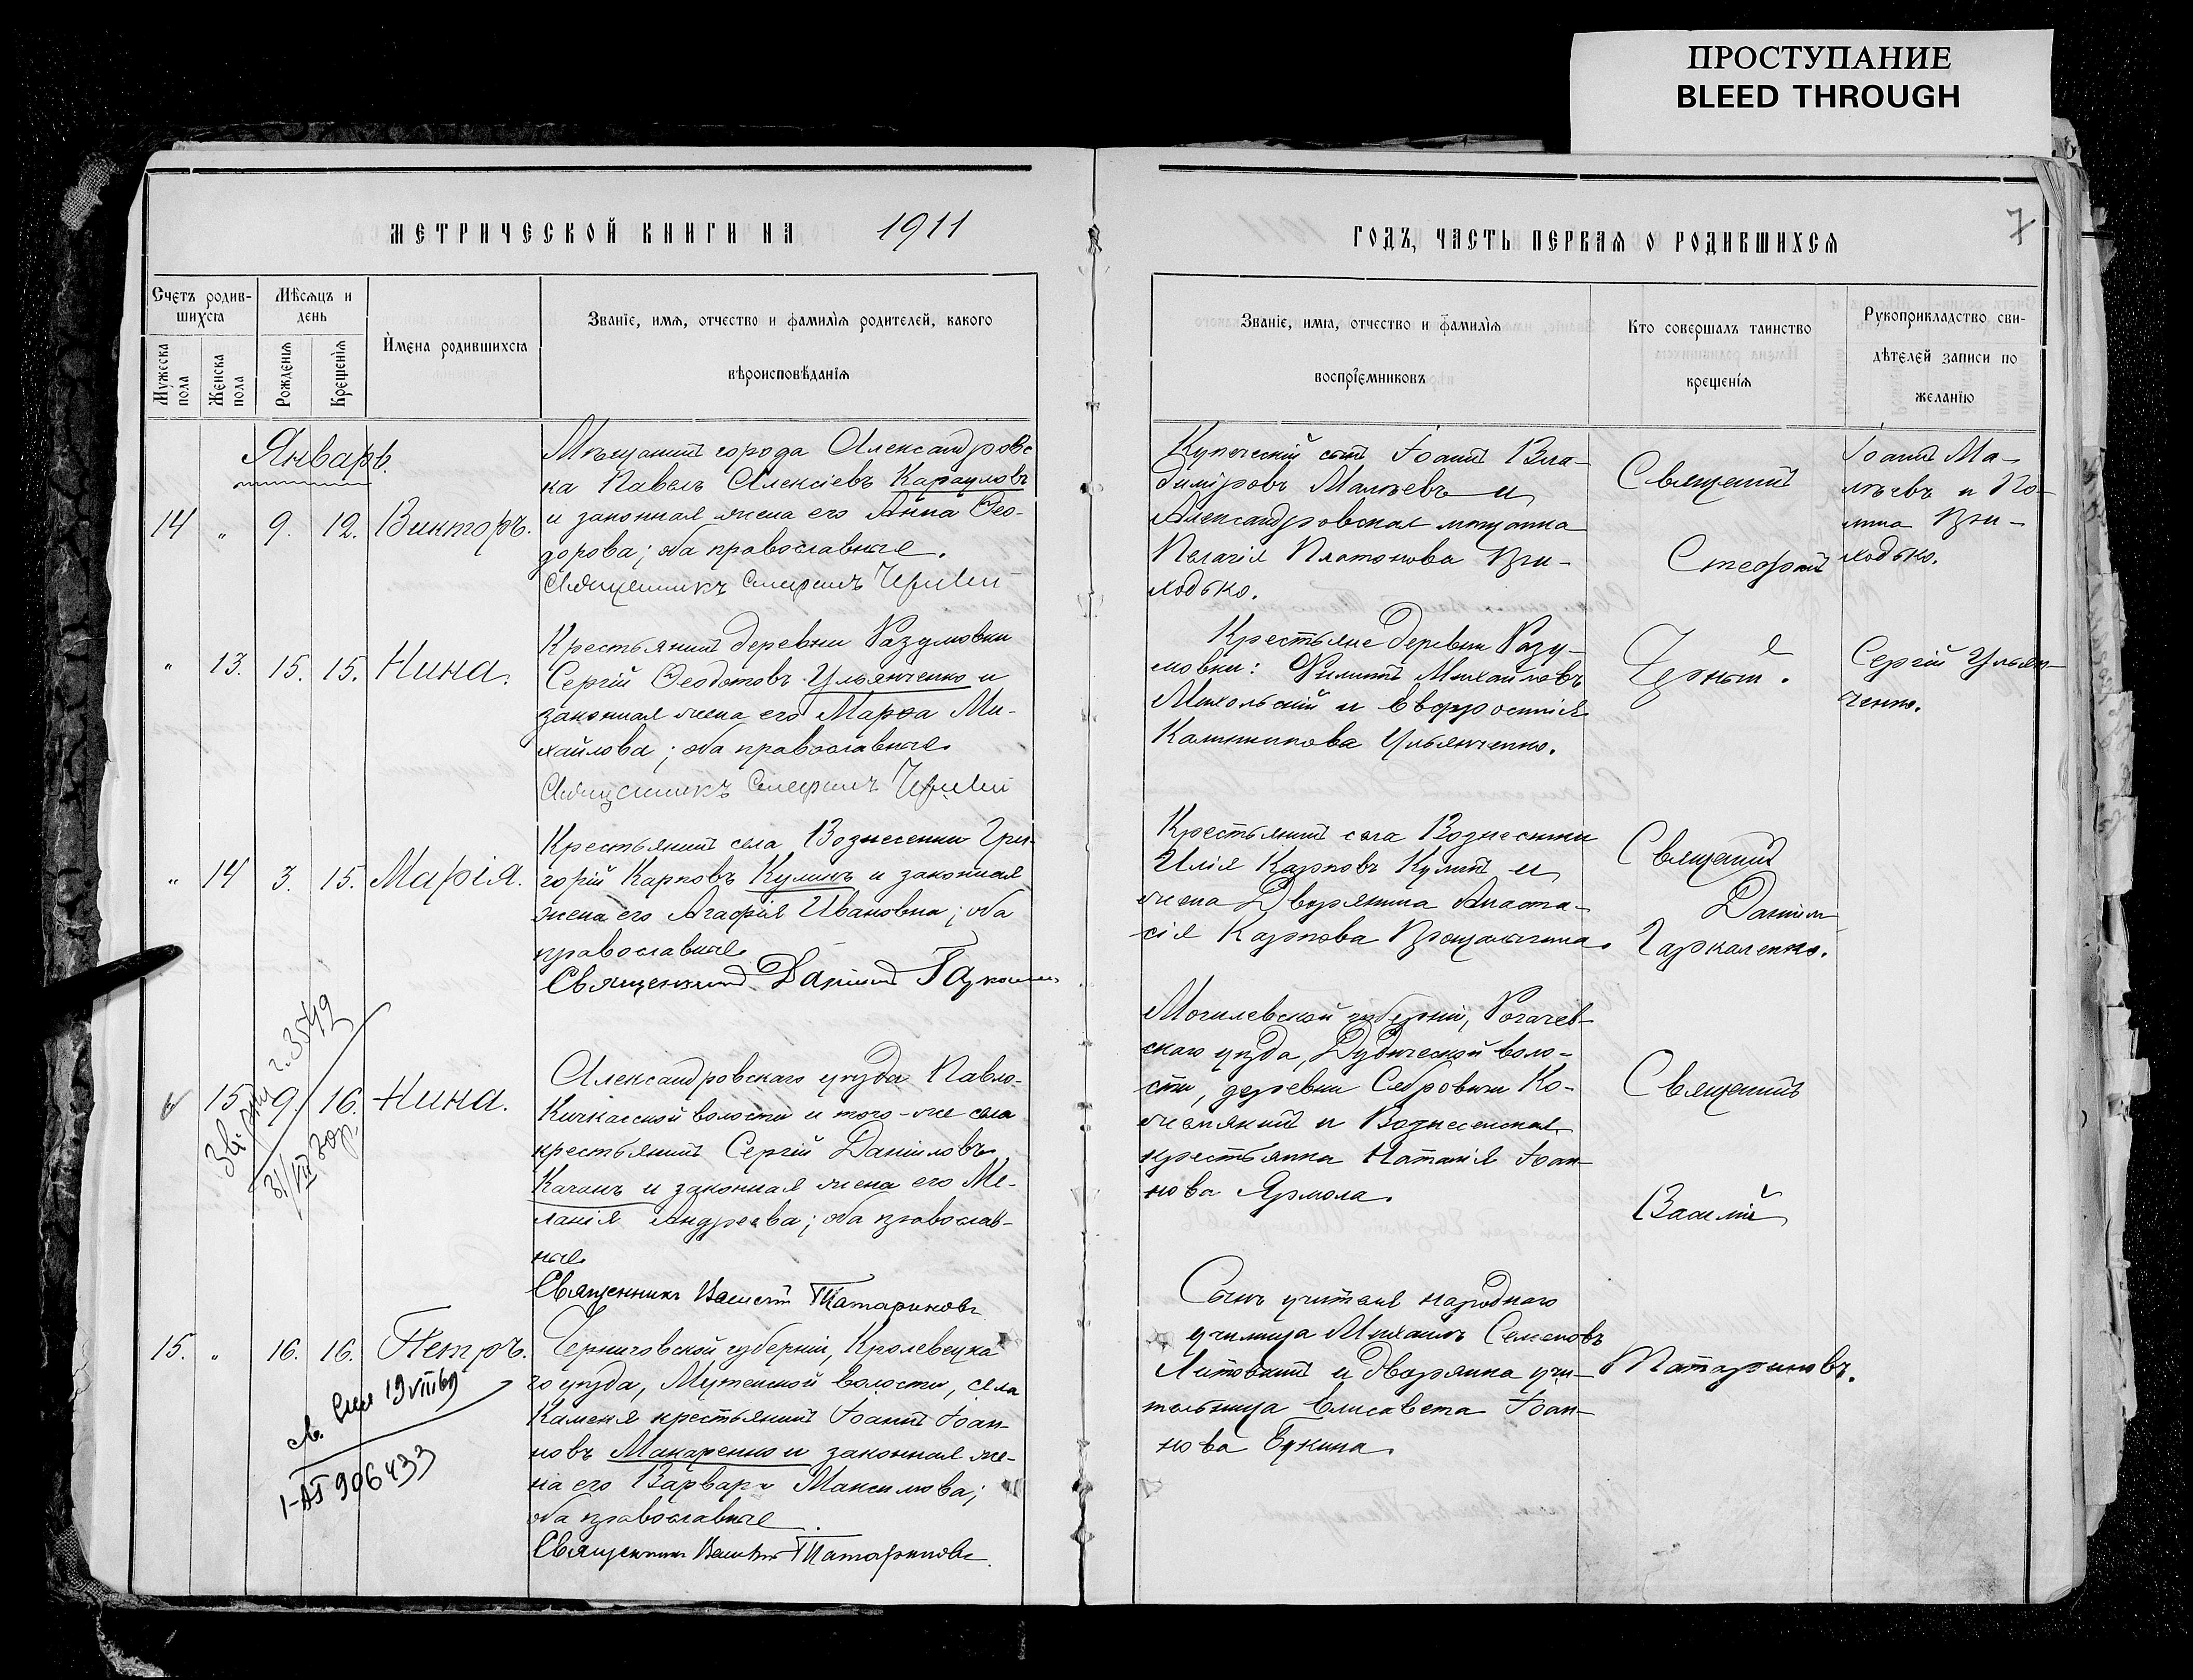 ПРОСТУПАНИЕ
BLEED THROUGH
7
МЕТРИЧЕСКОЙ КНИГИ НА 1911
ГОДЪ, ЧАСТЬ ПЕРВАЯ О РОДИВШИХСЯ
Счетъ родив-
шихся
Мужеска пола
Женска пола
Мѣсяцъ и
день
Рожденія
Крещенія
Имена родившихся
Званіе, имя, отчество и фамилія родителей, какого
вѣроисповѣданія
Званіе, имя, отчество и фамилія
воспріемниковъ
Кто совершалъ таинство
крещенія
Рукоприкладство сви-
дѣтелей записи по
желанію
Январь.
14 " 9. 12. Викторъ.
Мѣщанинъ города Александровс
ка Павелъ Алексіевъ Карауловъ
и законная жена его Анна Ѳео-
дорова; оба православные.
Священникъ Стефанъ Черный
Купеческій сынъ Іоаннъ Вла-
диміровъ Малѣевъ и
Александровская мѣщанка
Пелагія Платонова При-
ходько.
Священникъ
Стефанъ
Іоаннъ Ма-
лѣевъ и По-
лина При-
ходько.
" 13. 15. 15. Нина.
Крестьянинъ деревни Разумовки
Сергій Ѳеодотовъ Ульянченко и
законная жена его Марѳа Ми-
хайлова; оба православные.
Священникъ Стефанъ Черный
Крестьяне деревни Разу-
мовки: Филиппъ Михайловъ
и Евфросинія
Калинникова Ульянченко.
Черный.
Сергій Ульян-
ченко.
" 14 3. 15. Марія.
Крестьянинъ села Вознесенки Гри-
горій Карповъ Кулинъ и законная
жена его Агафія Ивановна; оба
православные
Священникъ Даніилъ
Крестьянинъ села Вознесенки
Илія Карповъ Кулинъ и
жена Дворянина Анаста-
сія Карпова
Священникъ
Даніилъ
Гаркаленко.
15 9. 16. Нина.
3549
31/VII
Александровскаго уѣзда Павло-
Кичкасской волости и того-же села
крестьянинъ Сергій Даніиловъ
Качанъ и законная жена его Ме-
ланія Андреева; оба православ-
ные
Священникъ Василій Татариновъ
Могилевской губерніи, Рогачев-
скаго уѣзда, Дудичской воло-
сти, деревни
и Вознесенская
крестьянка Наталія Іоан-
нова Ярмола.
Священникъ
Василій
15. " 16. 16. Петръ.
19 VIII 69
I-АП 906433
Черниговской губерніи, Кролевецка
го уѣзда, Мутинской волости, села
Каменя крестьянинъ Іоаннъ Іоан-
новъ Макаренко и законная же-
на его Варвара Максимова;
оба православные.
Священникъ Василій Татариновъ
Сынъ учителя народнаго
училища Михаилъ Семеновъ
Литовкинъ и дворянка учи-
тельница Елисавета Іоан-
нова Букина.
Татариновъ.